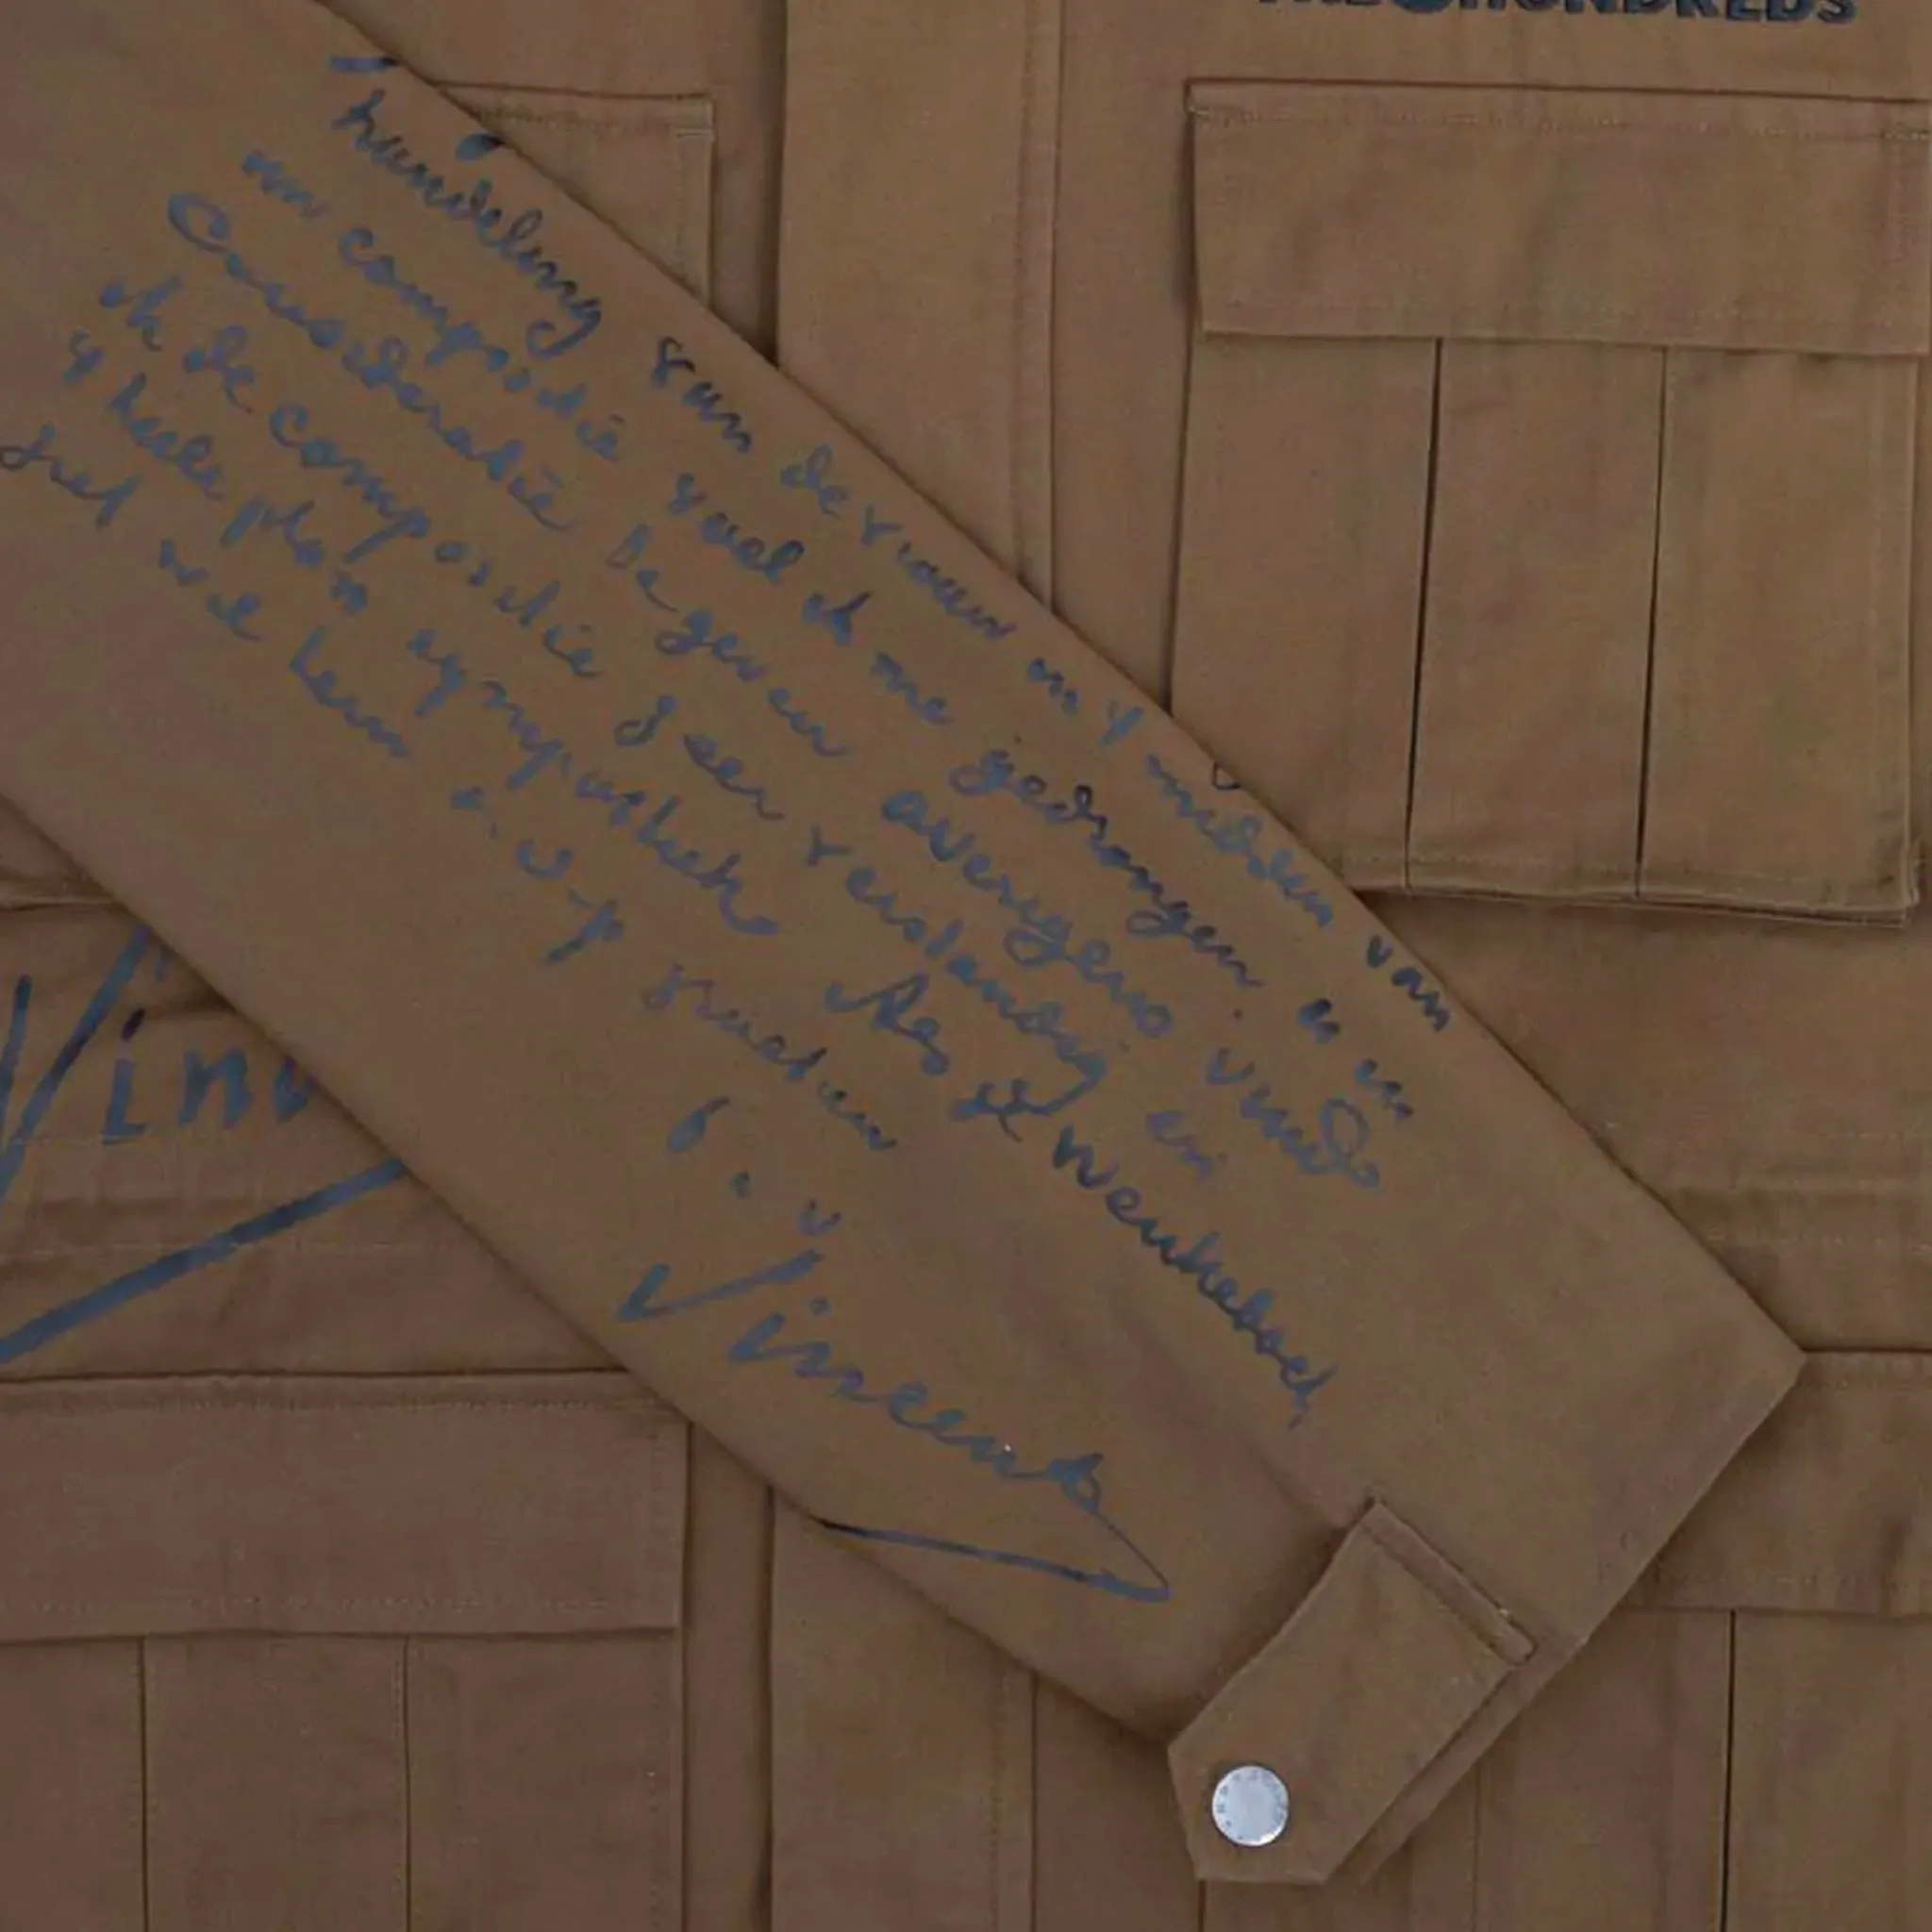 THE HUNDREDS
handeling van de vrouw in 't midden van
een compositie voel ik me gedrongen u in
Consideratie te geven overigens vind
ik de compositie zeer verstandig en
't heele plan sympathiek Als gij Wenkebach
ziet wil hem s.v.p. groeten
Vincent
Vinc